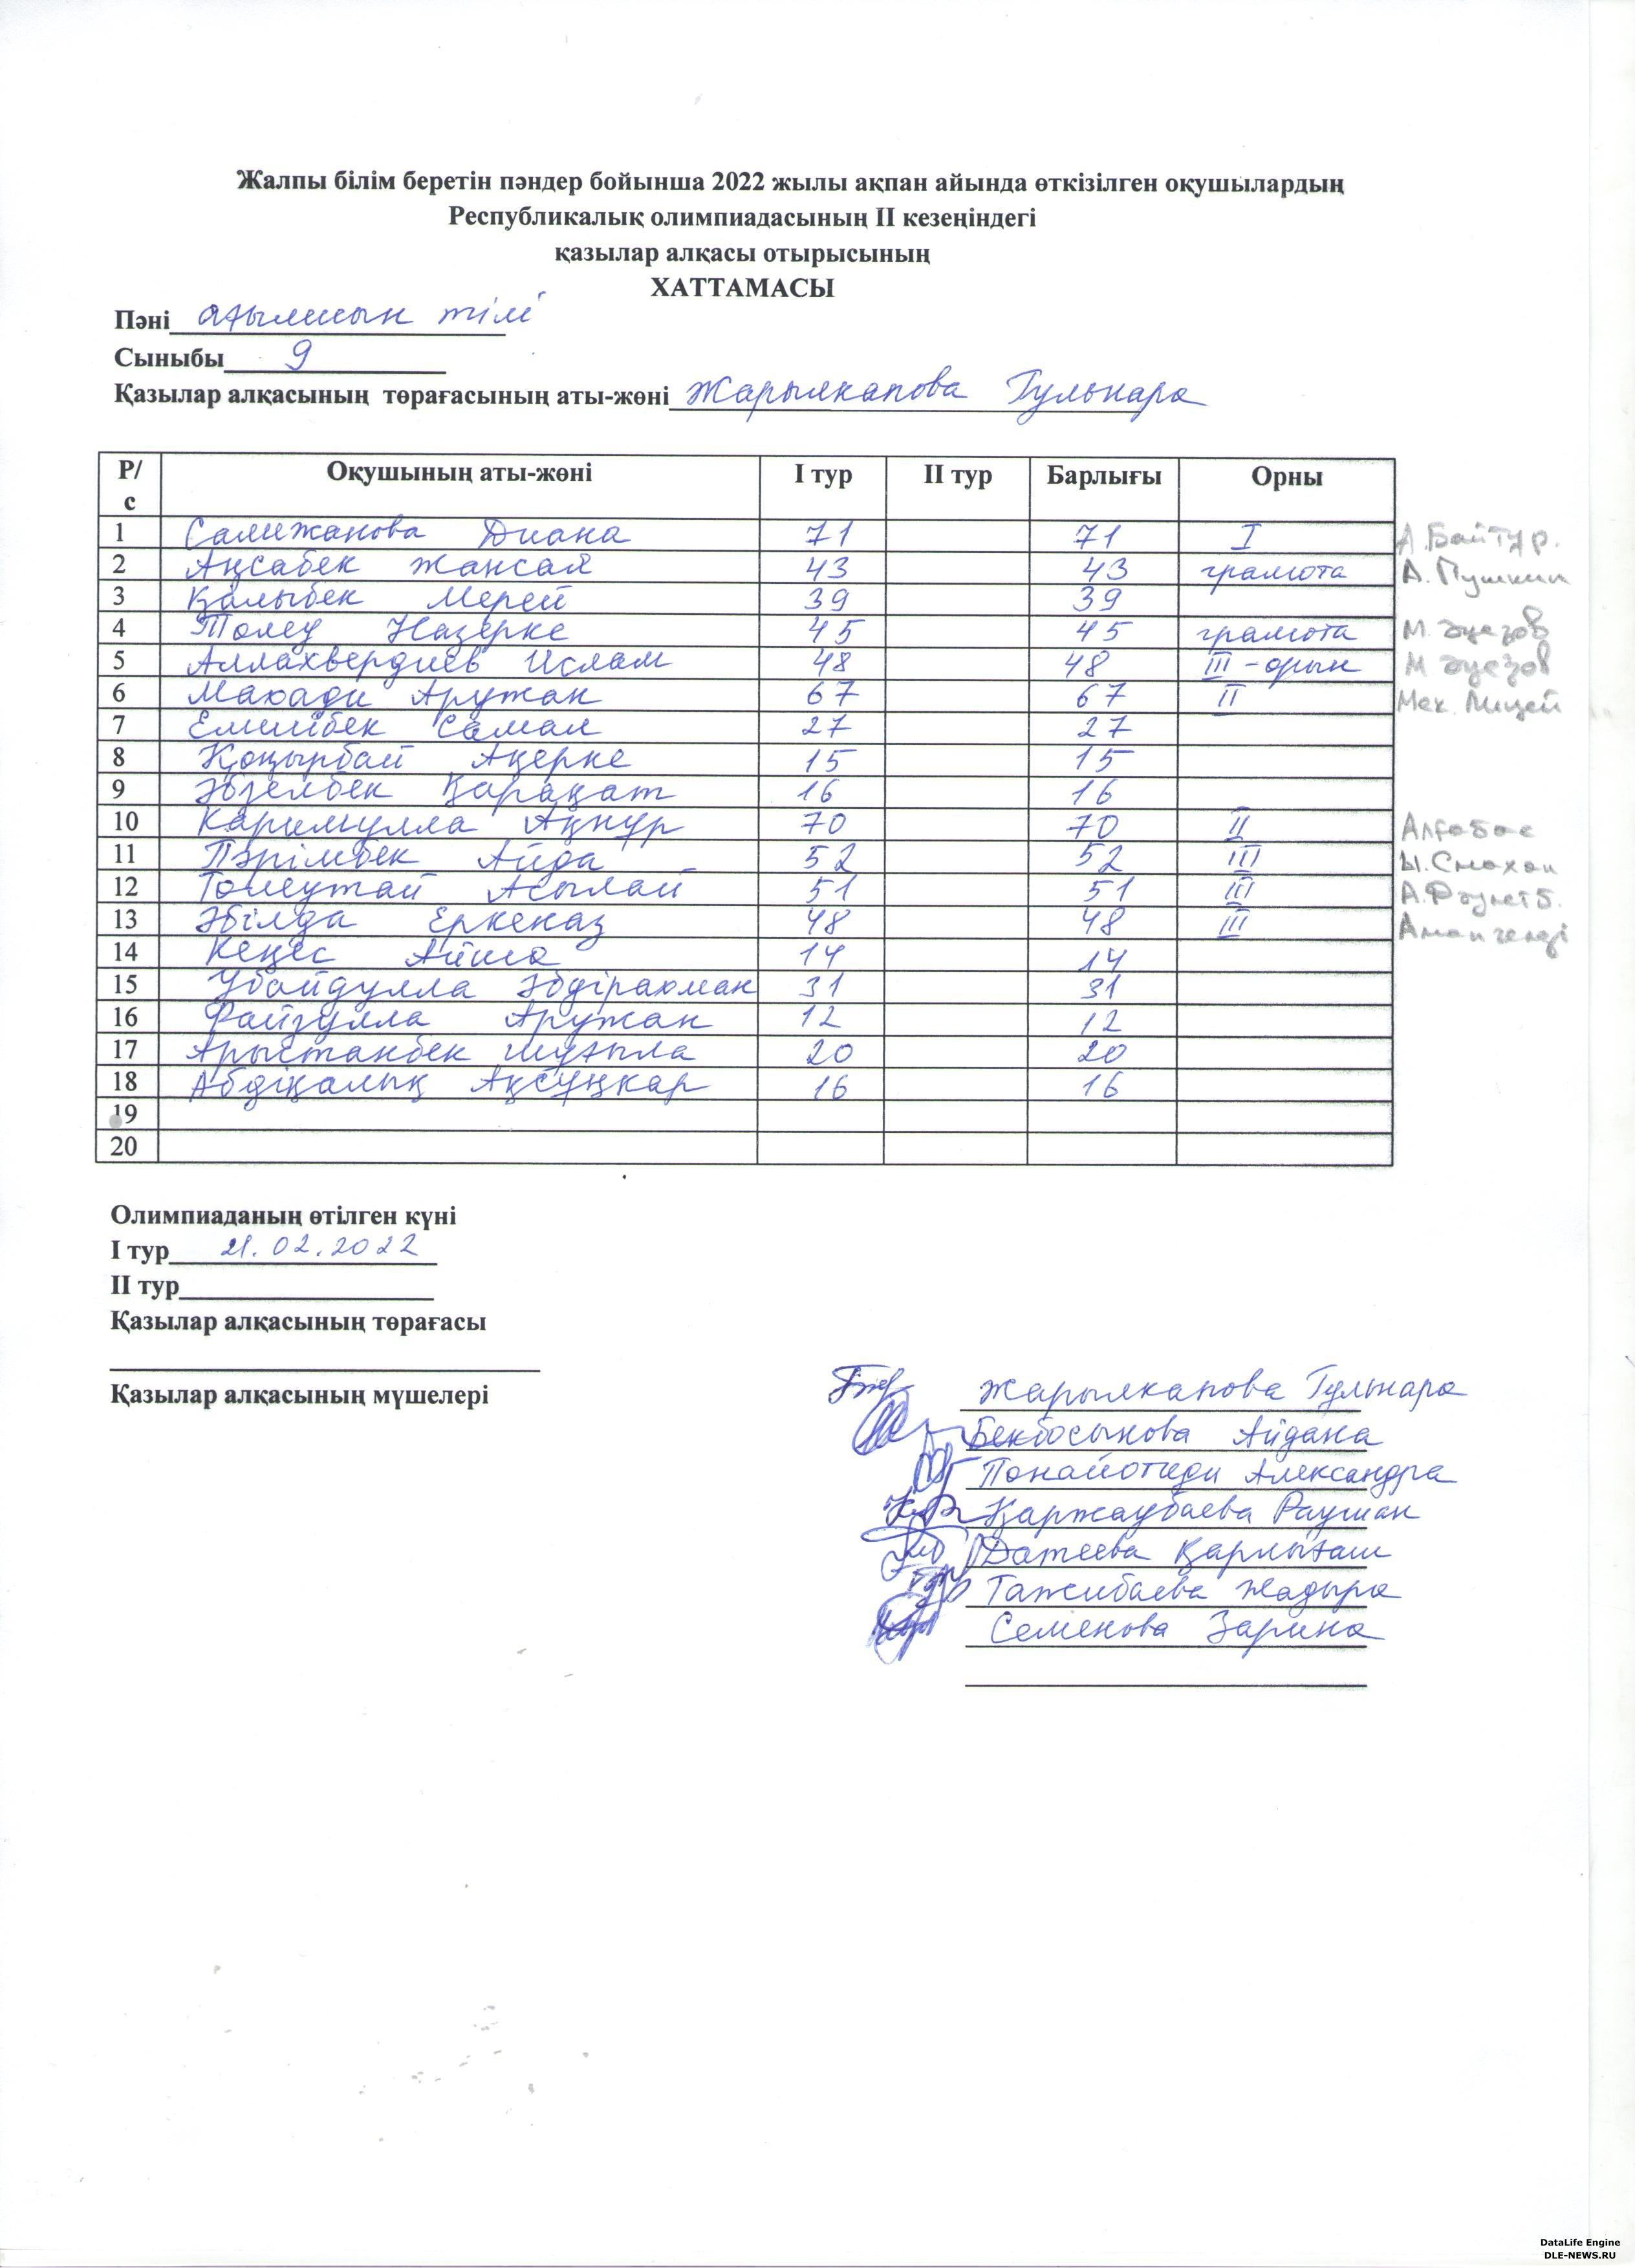 Жалпы білім беретін пәндер бойынша 2022 жылы ақпан айында өткізілген оқушылардың
Республикалық олимпиадасының II кезеңіндегі
қазылар алқасы отырысының
ХАТТАМАСЫ
Пәні ағылшын тілі
Сыныбы 9
Қазылар алқасының төрағасының аты-жөні Жарылкапова Гульнара
Р/с Оқушының аты-жөні I тур II тур Барлығы Орны
1 Салижанова Диана 71 71 I А.Байтұр.
2 Аңсабек Жансая 43 43 грамота А. Пушкин
3 Қалыбек Мерей 39 39
4 Төлеу Назерке 45 45 грамота М. Әуезов
5 Аллахвердиев Ислам 48 48 III - орын М. Әуезов
6 Махади Аружан 67 67 II Мек. Лицей
7 Емшібек Самал 27 27
8 Қоңырбай Ақерке 15 15
9 Әбзелбек Қарақат 16 16
10 Каримулла Ақнұр 70 70 II Алғабас
11 Пәрімбек Айда 52 52 III Ы.Смахан
12 Төлеутай Асылай 51 51 III
13 Әбілда Еркеназ 48 48 III Амангелді
14 Кеңес Айша 14 14
15 Убайдулла Әбдірахман 31 31
16 Файзулла Аружан 12 12
17 Арыстанбек Шуғыла 20 20
18 Абдіқалық Ақсұңкар 16 16
19
20
Олимпиаданың өтілген күні
I тур 21.02.2022
II тур
Қазылар алқасының төрағасы
Қазылар алқасының мүшелері
Жарылкапова Гульнара
Бекбосынова Айдана
Понайотиди Александра
Қаржаубаева Раушан
Датеева Қарлығаш
Тажибаева Жадыра
Семенова Зарина
DataLife Engine
DLE-NEWS.RU